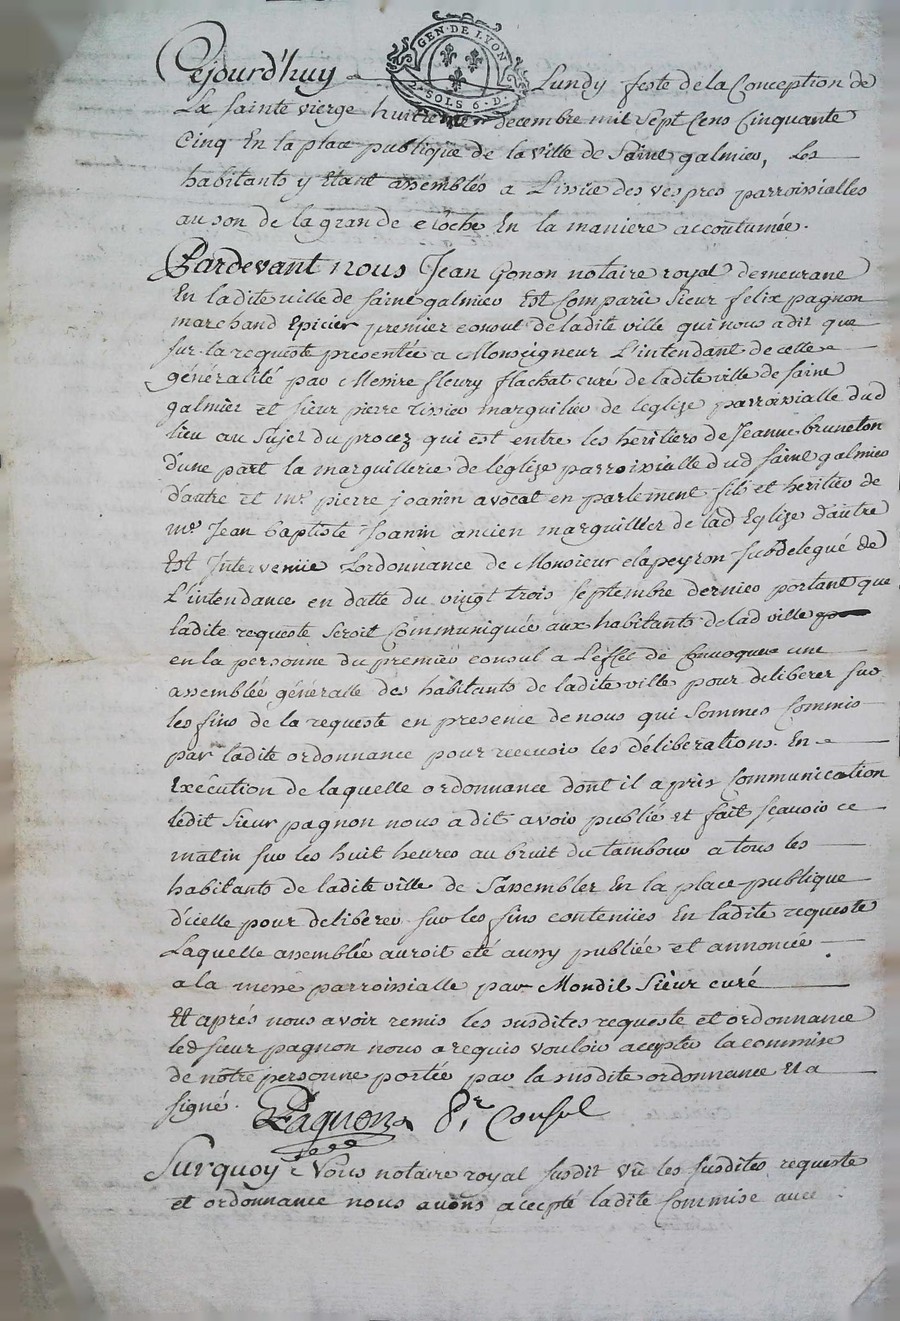 GEN·DE LYON
2·SOLS 6·D·
Cejourd'huy Lundy feste de la Conception de
La sainte vierge huitieme decembre mil sept Cens Cinquante
Cinq En la place publique de la ville de Saint galmier, Les
habitants y Etant assemblés a L'issüe des vespres parroissialles
au son de la grande cloche En la maniere accoutumée.
Pardevant nous Jean Gonon notaire royal demeurant
En ladite ville de saint galmier Est Comparu Sieur felix pagnon
marchand Epicier premier consul de ladite ville qui nous a dit que
sur la requeste presentée a Monseigneur L'intendant de cette
généralité par Messire fleury flachat curé de ladite ville de saint
galmier et sieur pierre marguilier de leglize parroissialle dud
lieu au Sujet du procez qui est entre les heritiers de Jeanne bruneton
d'une part la marguillerie de léglize parroissialle dud saint galmier
d'autre et mr pierre joanin avocat en parlement fils et heritier de
mr Jean baptiste Joanin ancien marguillier de lad Eglize d'autre
Est Intervenüe Lordonnance de Monsieur delapeyron subdelegué de
L'intendance en datte du vingt trois septembre dernier portant que
ladite requeste seroit Communiquée aux habitants de lad ville
en la personne du premier consul a L'effet de Convoquer une
assemblée généralle des habitants de ladite ville pour deliberer sur
les fins de la requeste en presence de nous qui Sommes Commis
par ladite ordonnance pour recevoir les déliberations. En
Exécution de laquelle ordonnance dont il a pris Communication
ledit Sieur pagnon nous a dit avoir publié et fait sçavoir ce
matin sur les huit heures au bruit du tambour a tous les
habitants de ladite ville de S'assembler En la place publique
d'icelle pour deliberer sur les fins contenües En ladite requeste
Laquelle assemblée auroit été aussy publiée et annoncée
a la messe parroissialle par Mondit Sieur curé
Et aprés nous avoir remis les susdites requeste et ordonnance
led sieur pagnon nous a requis vouloir accepter la commise
de nôtre personne portée par la susdite ordonnance Et a
signé. Pagnon Pr Consul
Surquoy Nous notaire royal susdit vü les susdites requeste
et ordonnance nous avons accepté ladite Commise avec